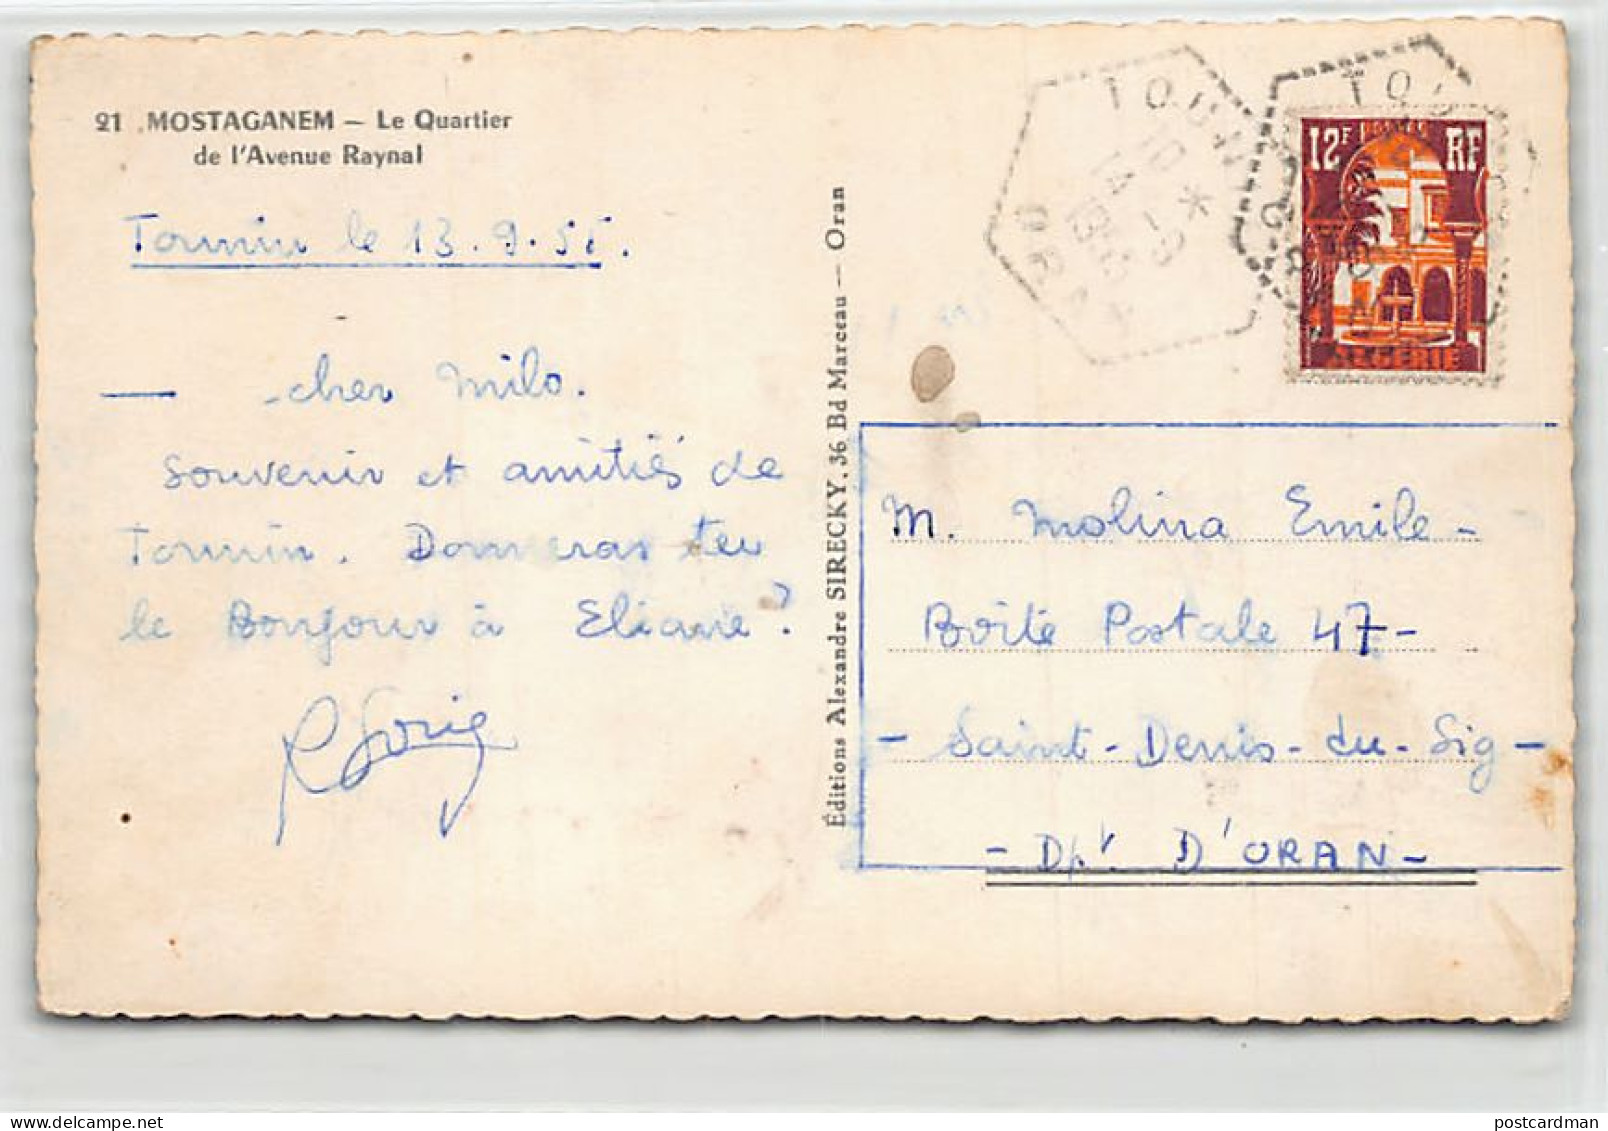 21 MOSTAGANEM — Le Quartier
de l'Avenue Raynal
Tounin le 13.9.55.
— cher Milo.
Souvenir et amitiés de
Tounin. Donneras tu
le Bonjour à Eliane ?
Éditions Alexandre SIRECKY, 36 Bd Marceau — Oran
TOUNIN
ORAN
12F POSTES RF
ALGERIE
M. Molina Emile -
Boîte Postale 47 -
- Saint - Denis - du - Sig -
- Dpt D'ORAN -
postcardman